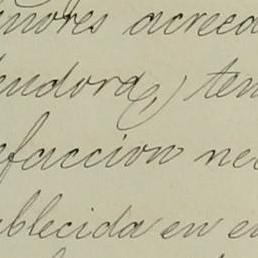 mores acreed
eudora) ten
efaccion ne
ablecida en e